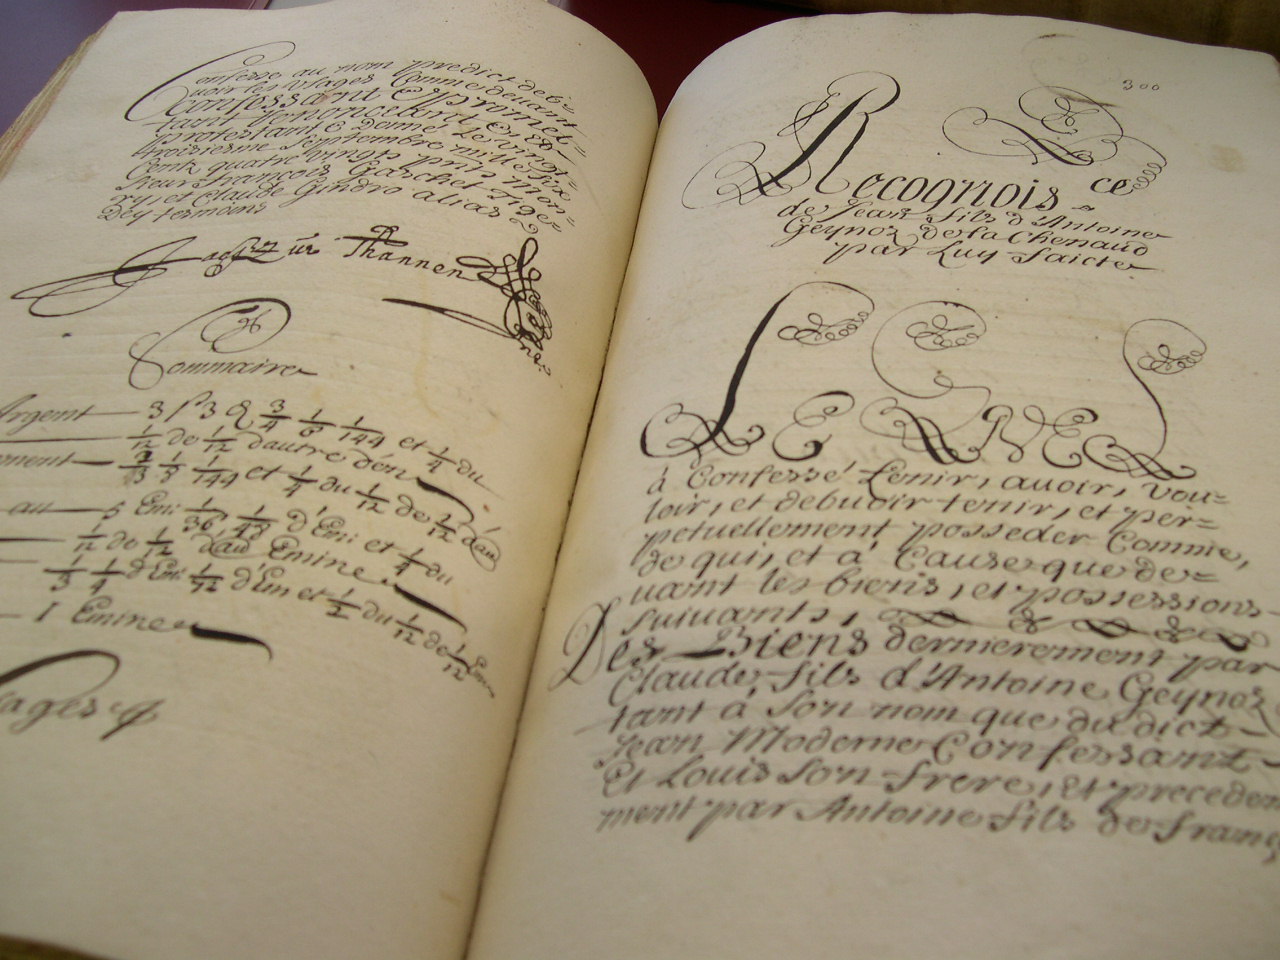 Confesse au nom predict deb-
uoir les Usages Comme deuant
Confessant Et promet-
tant Renonceant Et
protestant, & Donné le vingt-
troisiesme Septembre mille Six
Cents quatre vingts pris Mon-
sieur François Gaschet
et Claude Gindro alias
Dey tesmoins
Thannen
Sommaire
Argent 3 ß 3 ₰ 3/4 1/8 1/144 et 1/4 du
1/12 de 1/12 dautre dén
1/3 1/8 1/144 et 1/4 du 1/12 de 1/12 d'au
5 Emi 1/36, 1/48 d'Emi et 1/4 du
1/12 de 1/12 d'au Emine
1/3 1/4 d'Emi 1/12 d'Em et 1/2 du 1/12 de 1/12 Em
1 Emine
300
Recognoisce
de Jean fils d'Antoine
Geynoz de la Chenaud
par Luy faicte
LES
à Confessé Tenir, auoir, vou-
loir, et debuoir tenir, et per-
petuellement posseder Comme,
de qui, et à Cause que de-
uant les biens, et possessions
suiuants,
Des Biens dernierement par
Claude fils d'Antoine Geynoz
tant à Son nom que du dict
Jean Moderne Confessant
Et Louis Son frere, Et preceden
ment par Antoine fils de Franç